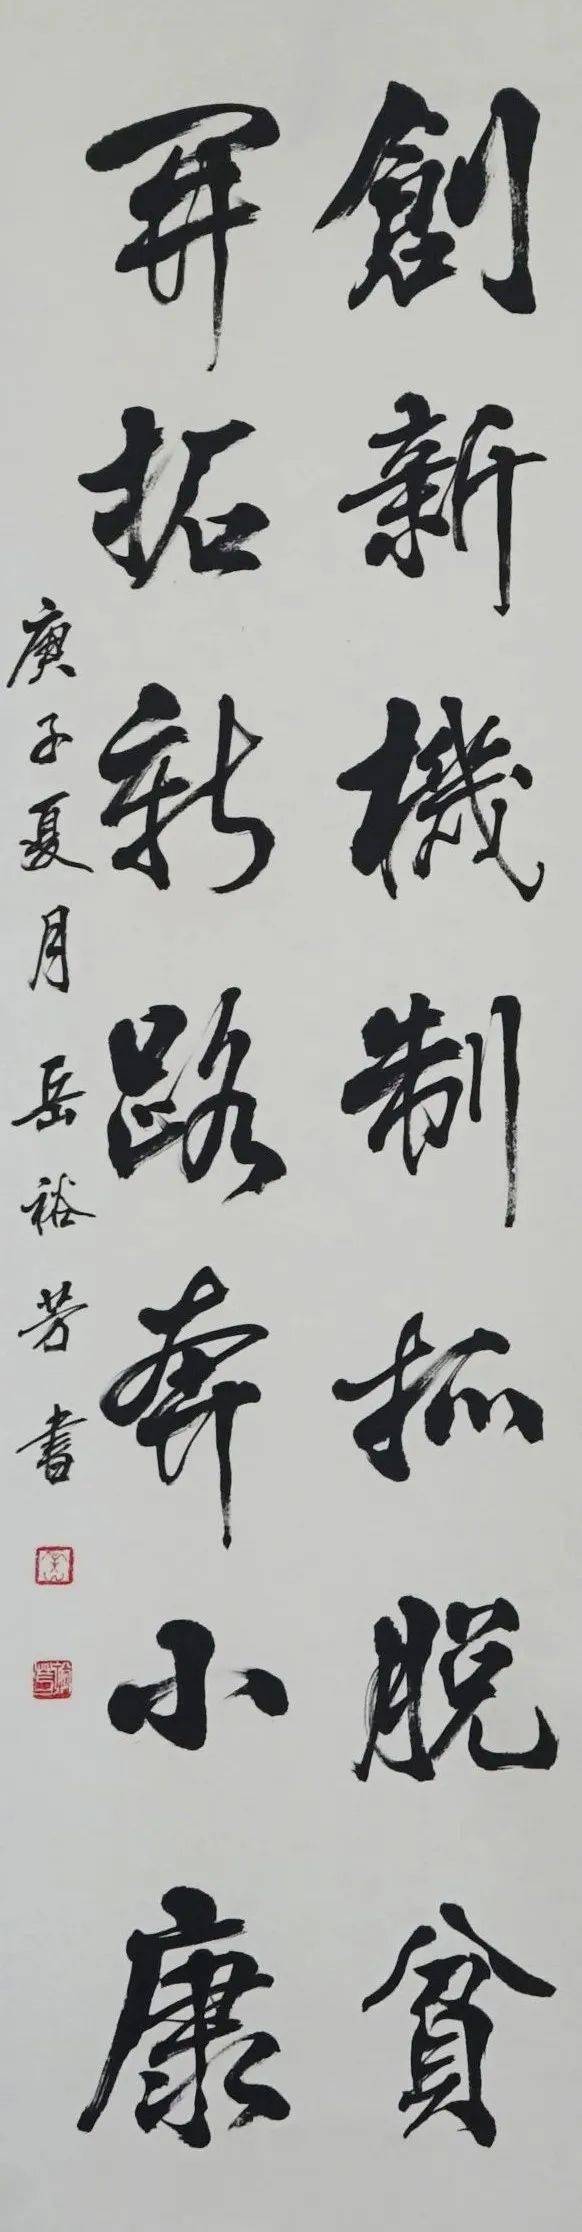 創新機制抓脱貧
開拓新路奔小康
庚子夏月岳裕芳書